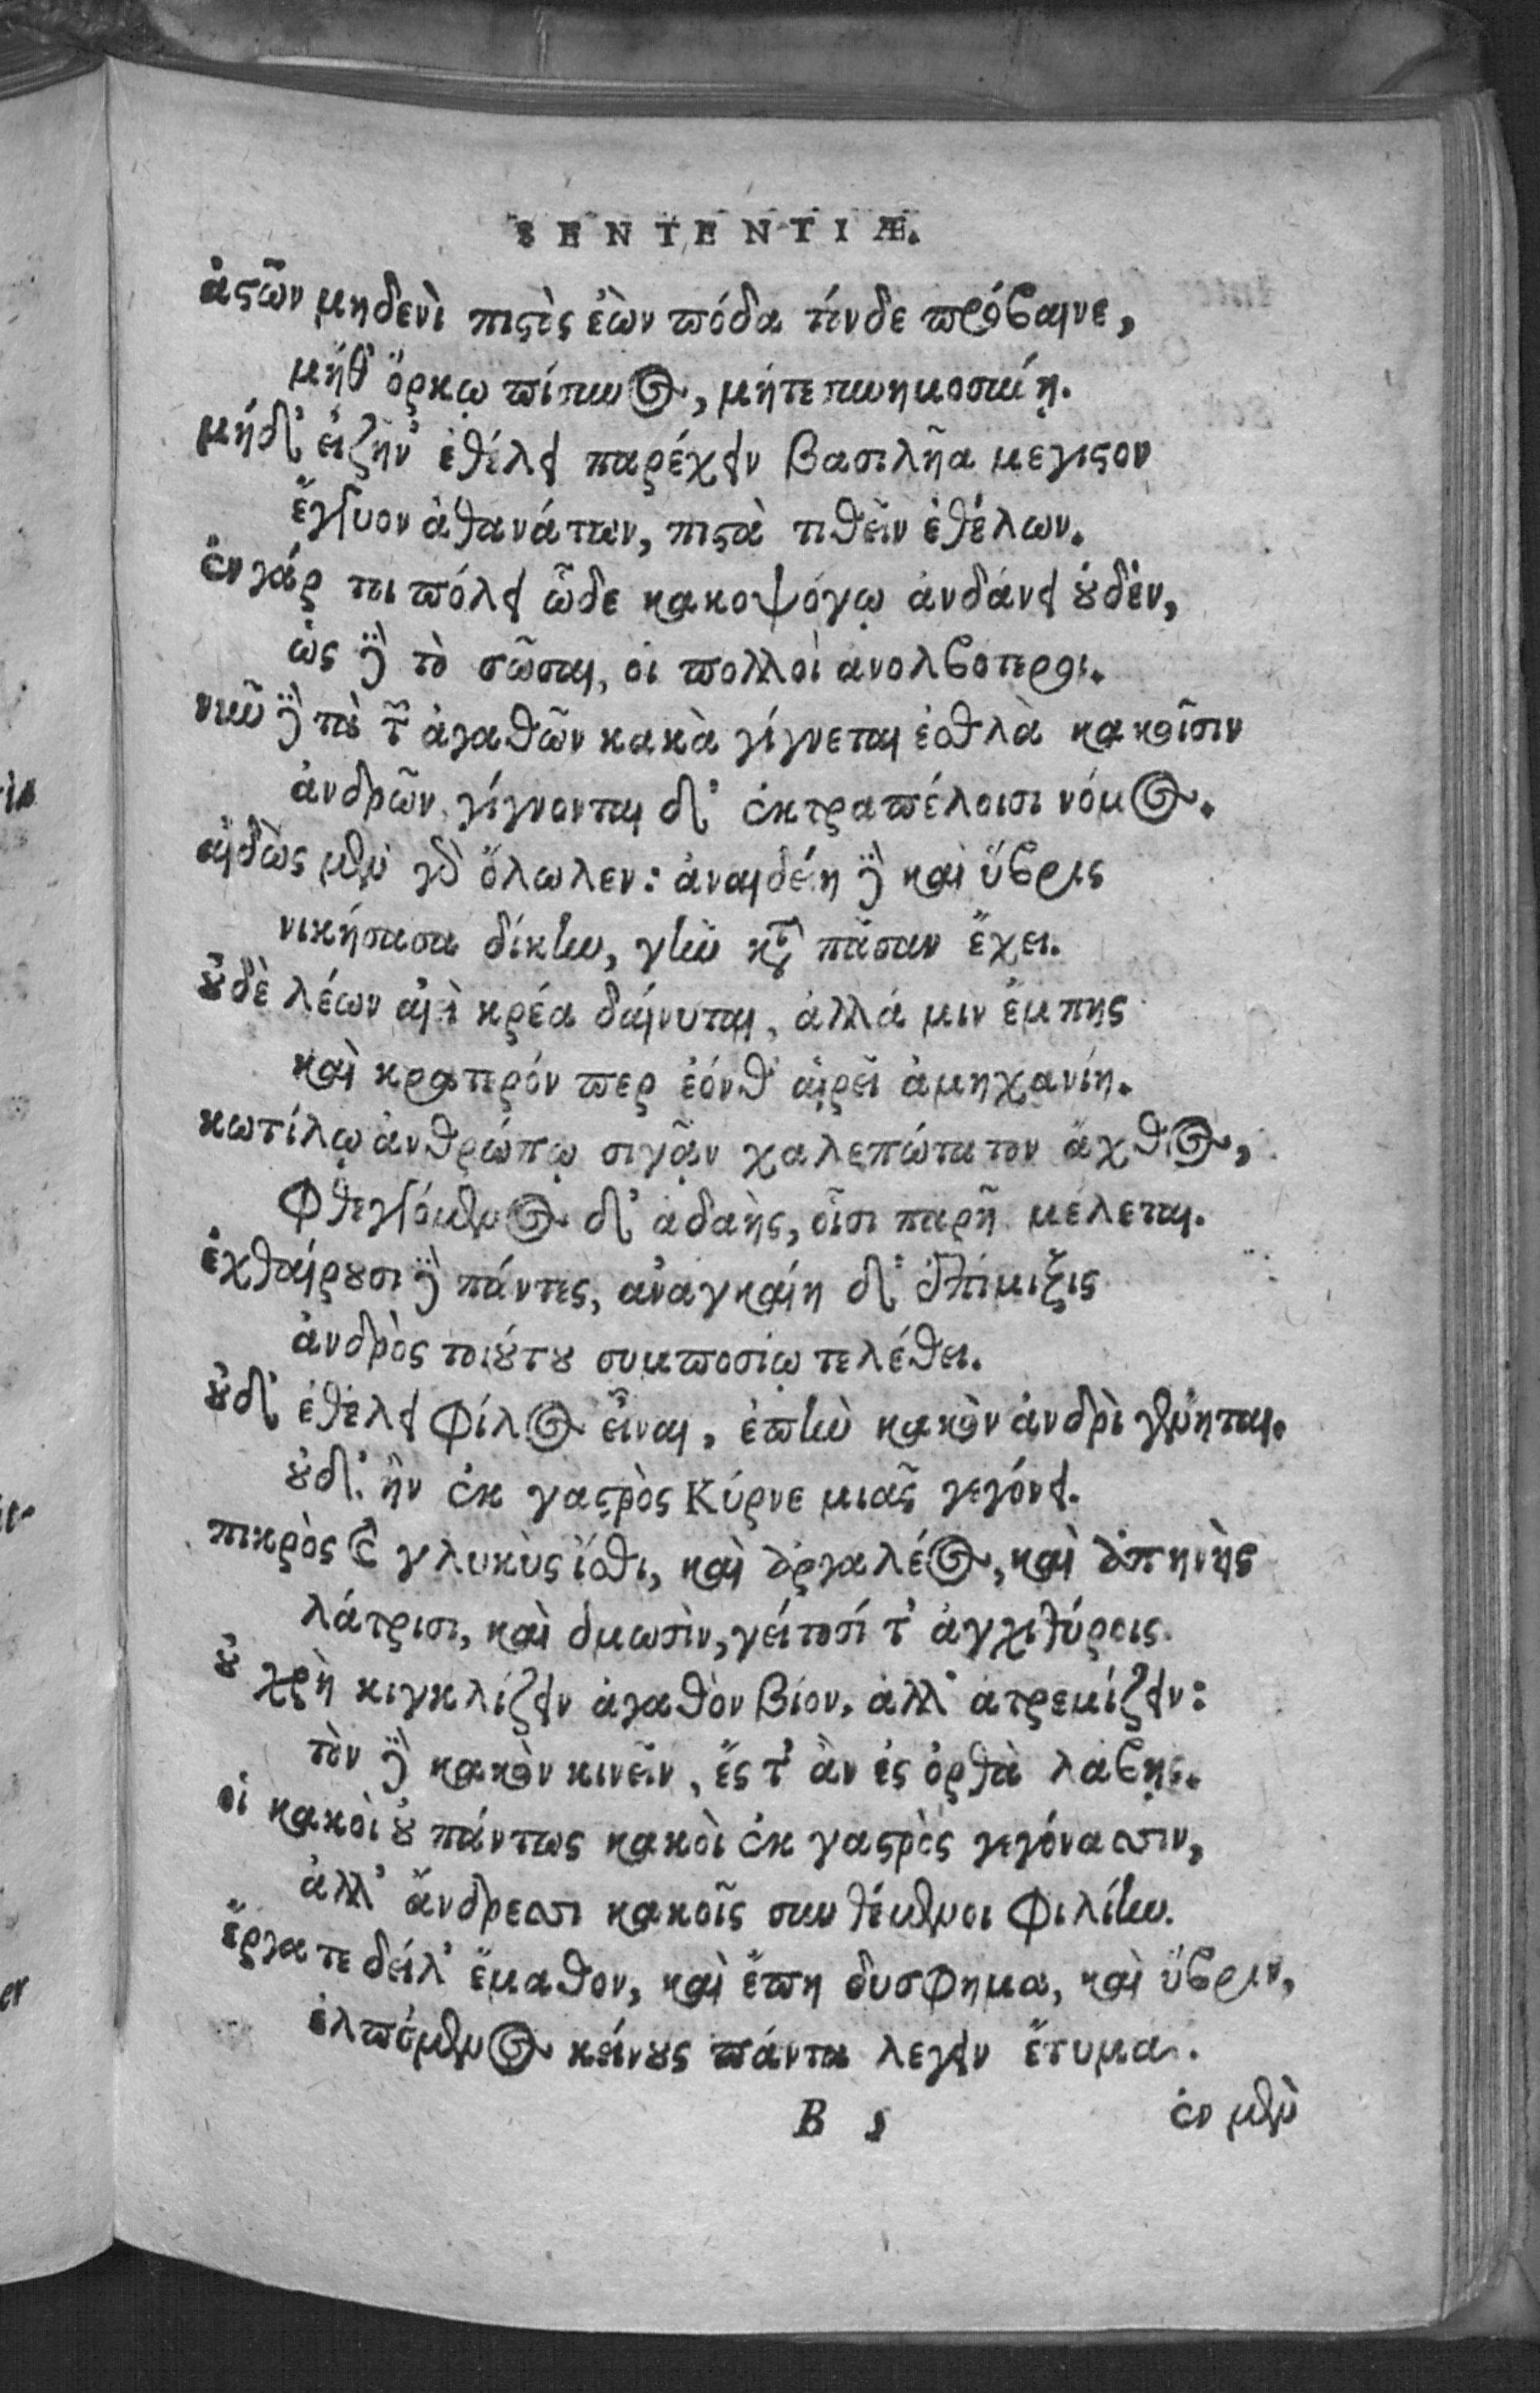 SENTENTIÆ.
ἀστῶν μηδενὶ πιστὸς ἐὼν πόδα τόνδε πρόβαινε,
μήθ' ὅρκῳ πίσυνος, μήτε συνημοσύνῃ.
μήδ' εἰ ζῆν' ἐθέλει παρέχειν βασιλῆα μεγιστον
ἔγγυον ἀθανάτων, πιστὰ τιθεῖν ἐθέλων.
ἐν γάρ τοι πόλει ὧδε κακοψόγῳ ἀνδάνει οὐδὲν,
ὡς δὲ τὸ σῶσαι, οἱ πολλοὶ ανολβοτεροι.
νῦν δὲ τὰ τῶν ἀγαθῶν κακὰ γίγνεται ἐσθλὰ κακοῖσιν
ἀνδρῶν, γίγνονται δ' ἐκτραπέλοισι νόμος.
αἰδὼς μὲν γὰρ ὄλωλεν: ἀναιδείη δὲ καὶ ὕβρις
νικήσασα δίκην, γῆν κατὰ πᾶσαν ἔχει.
οὐδὲ λέων αἰεὶ κρέα δαίνυται, ἀλλά μιν ἔμπης
καὶ κρατερόν περ ἐόνθ' αἱρεῖ ἀμηχανίη.
κωτίλῳ ἀνθρώπῳ σιγᾷν χαλεπώτατον ἄχθος,
φθεγγόμενος δ' ἀδαὴς, οἷσι παρῇ μέλεται.
ἐχθαίρουσι δὲ πάντες, αναγκαίη δ' ἐπίμιξις
ἀνδρὸς τοιούτου συμποσίῳ τελέθει.
οὐδ' ἐθέλει φίλος εἶναι, ἐπὴν κακὸν ἀνδρὶ γένηται.
οὐδ' ἢν ἐκ γαστρὸς Κύρνε μιᾶς γεγόνει.
πικρὸς καὶ γλυκὺς ἴσθι, καὶ ἀργαλέος, καὶ ἀπηνὴς
λάτρισι, καὶ δμωσὶν, γείτοσί τ' ἀγχιθύροις.
οὐ χρὴ κιγκλίζειν ἀγαθὸν βίον, ἀλλ' ἀτρεμίζειν:
τὸν δὲ κακὸν κινεῖν, ἔς τ' ἂν ἐς ὀρθὰ λαβῃς.
οἱ κακοὶ οὐ πάντως κακοὶ ἐκ γαστρὸς γεγόνασιν,
ἀλλ' ἄνδρεσι κακοῖς συνθέμενοι φιλίην.
ἔργα τε δείλ' ἔμαθον, καὶ ἔπη δυσφημα, καὶ ὕβριν,
ἐλπόμενος κείνους πάντα λεγειν ἔτυμα.
B 5
ἐν μὲν